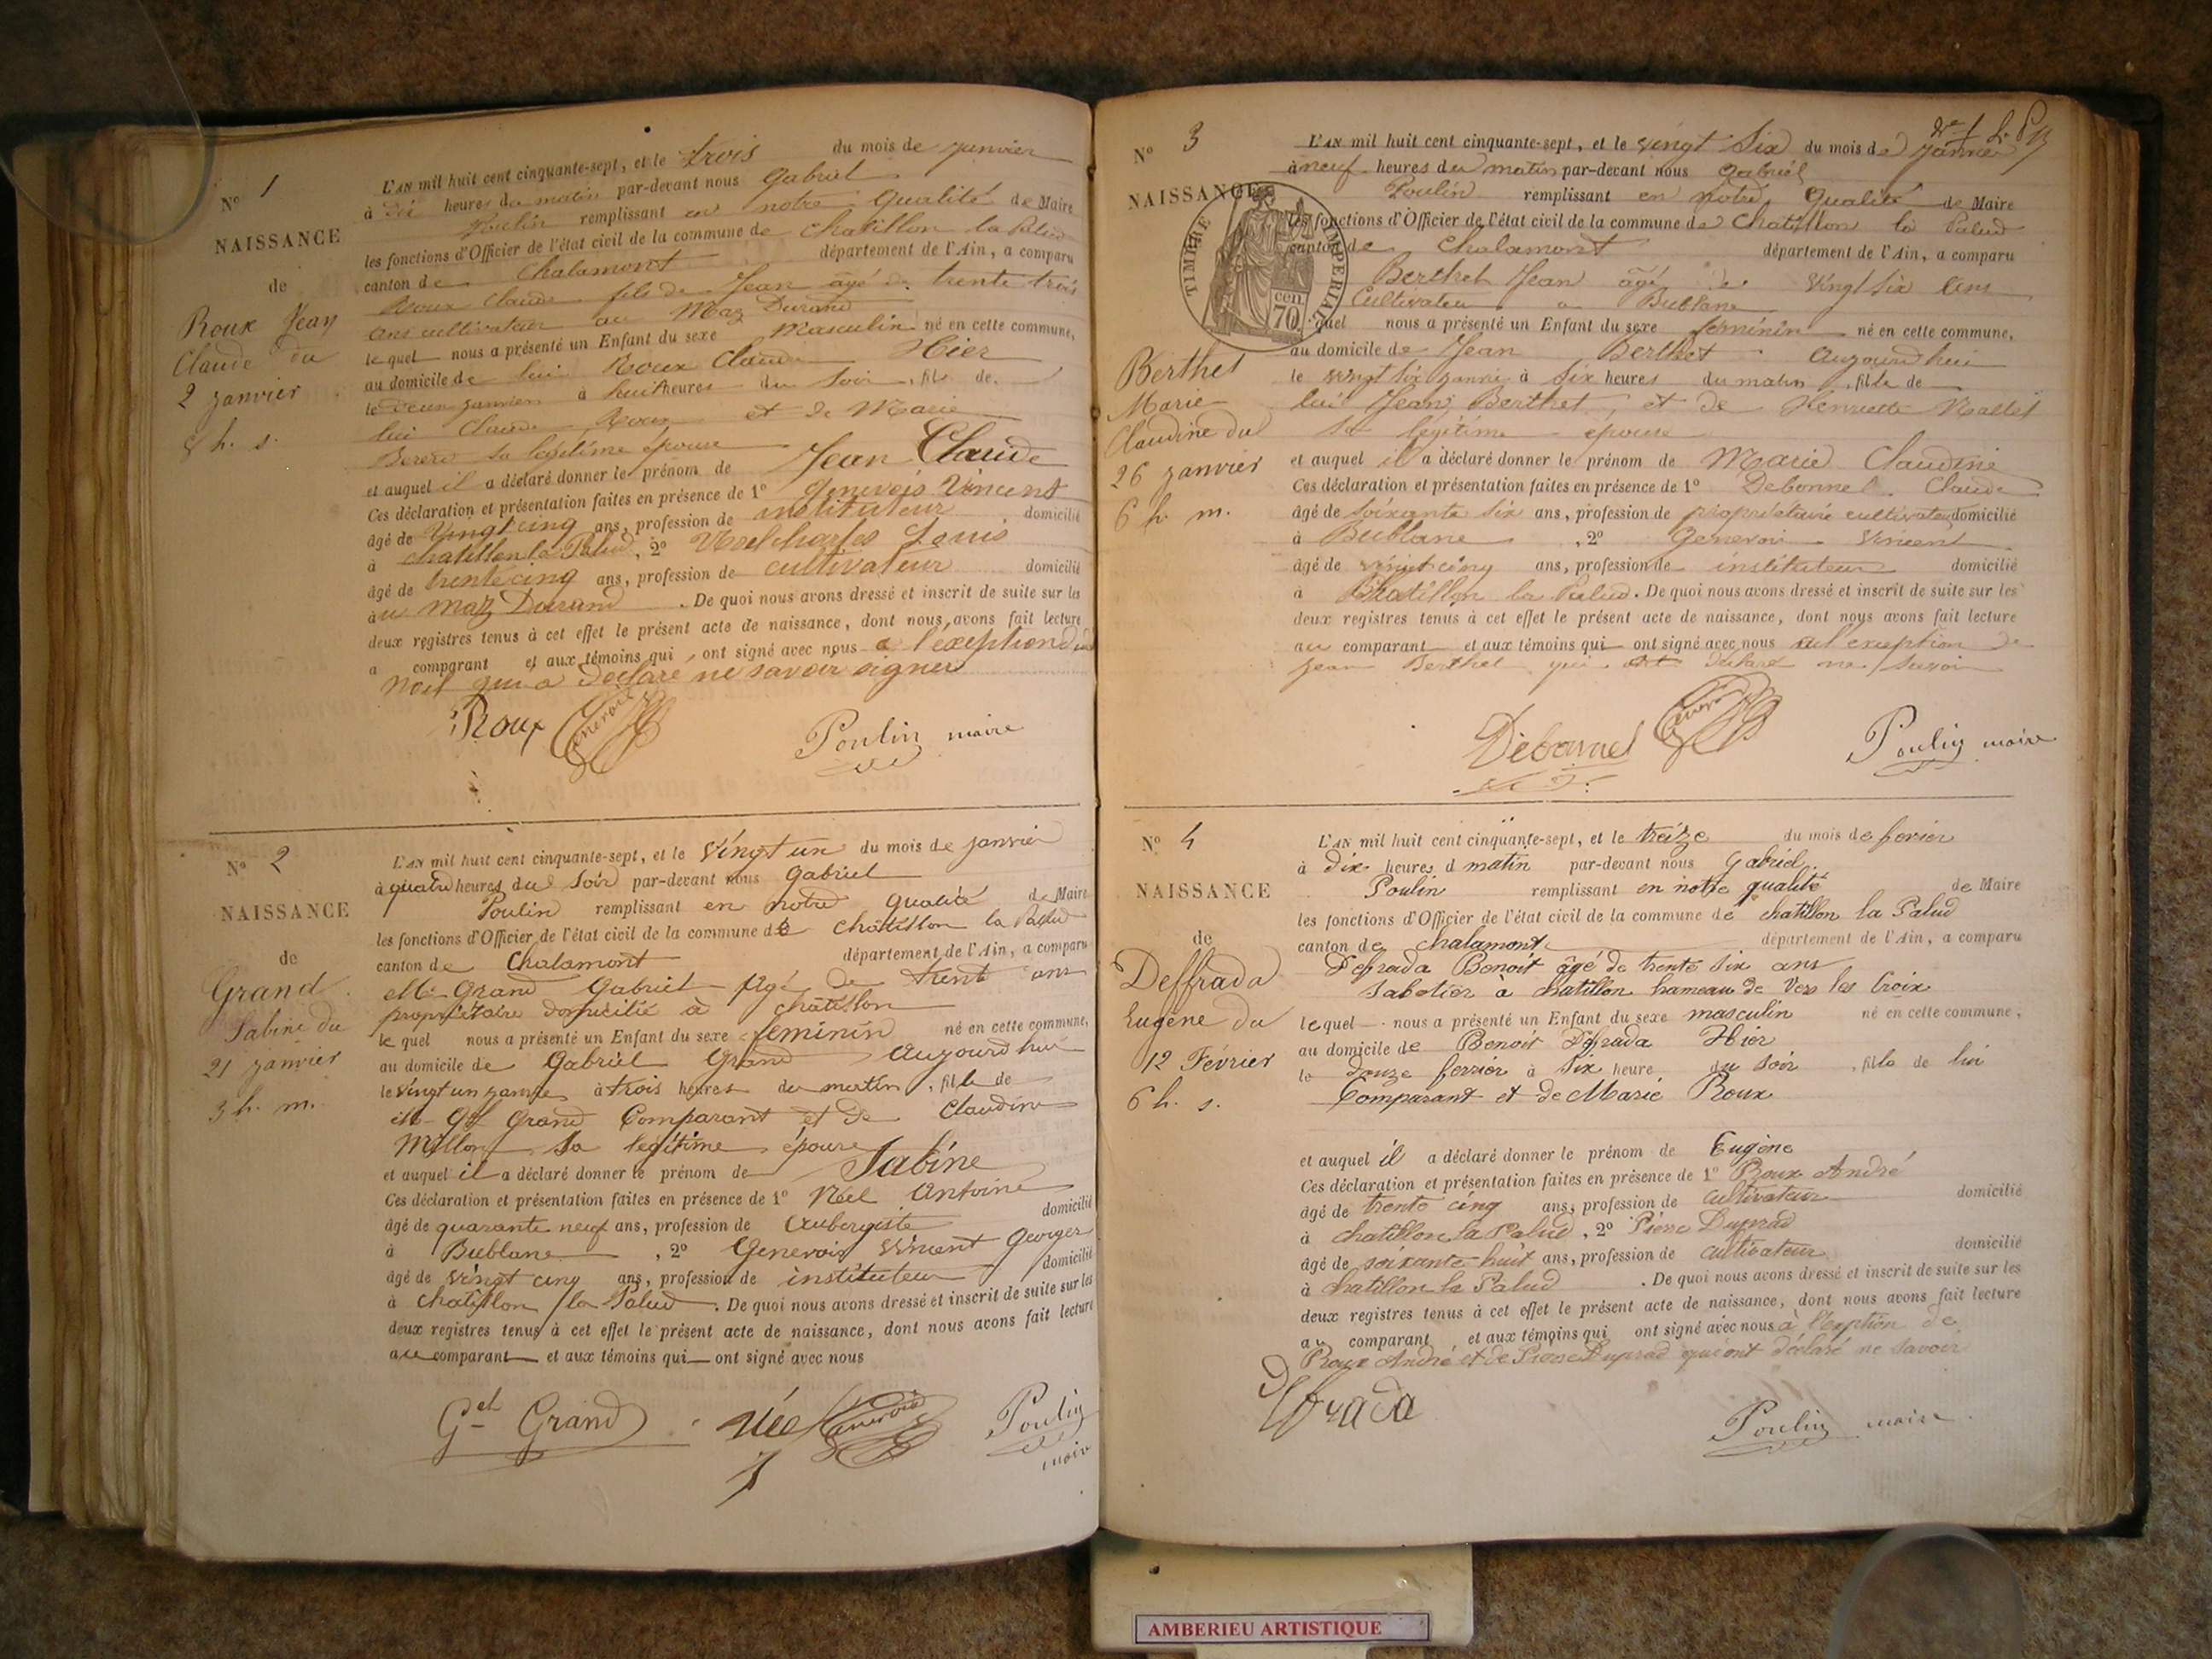 N° 1
NAISSANCE
de
Roux Jean
Claude du
2 janvier
8 h. s.
L'AN mil huit cent cinquante-sept, et le trois du mois de janvier
à dix heures du matin par-devant nous Gabriel
Poulin remplissant en notre qualité de Maire
les fonctions d'Officier de l'état civil de la commune de Chatillon la Palud
canton de Chalamont département de l'Ain, a comparu
Roux Claude fils de Jean âgé de trente trois
ans cultivateur au Maz Durand
lequel nous a présenté un Enfant du sexe Masculin né en cette commune,
au domicile de lui Roux Claude Hier
le deux janvier à huit heures du soir, fils de
lui Claude Roux et de Marie
sa légitime épouse
et auquel il a déclaré donner le prénom de Jean Claude
Ces déclaration et présentation faites en présence de 1° Genevois Vincent
âgé de Vingt cinq ans, profession de instituteur domicilié
à chatillon la Palud, 2° Noel charles Louis
âgé de trente cinq ans, profession de cultivateur domicilié
au maz Durand. De quoi nous avons dressé et inscrit de suite sur les
deux registres tenus à cet effet le présent acte de naissance, dont nous avons fait lecture
a comparant et aux témoins qui ont signé avec nous a l'exeption
Noel qui a déclaré ne savoir signer
Roux Genevois Poulin maire
N° 2
NAISSANCE
de
Grand
Sabine du
21 janvier
3 h. m.
L'AN mil huit cent cinquante-sept, et le Vingt un du mois de janvier
à quatre heures du soir par-devant nous Gabriel
Poulin remplissant en notre qualité de Maire
les fonctions d'Officier de l'état civil de la commune de Châtillon la Palud
canton de Chalamont département de l'Ain, a comparu
Grand Gabriel Agé de trent ans
propriétaire domicilié à chatillon
le quel nous a présenté un Enfant du sexe feminin né en cette commune,
au domicile de Gabriel Grand Aujourd hui
le vingt un à trois heures du matin, fille de
Grand Comparant et de Claudine
Millon sa legitime épouse
et auquel il a déclaré donner le prénom de Sabine
Ces déclaration et présentation faites en présence de 1° Néel Antoine
âgé de quarante neuf ans, profession de Aubergiste domicilié
à Bublane, 2° Genevois Vincent Georges
âgé de vingt cinq ans, profession de instituteur domicilié
à Chatillon la Palud. De quoi nous avons dressé et inscrit de suite sur les
deux registres tenus à cet effet le présent acte de naissance, dont nous avons fait lecture
au comparant et aux témoins qui ont signé avec nous
Gel Grand Née Genevois Poulin
maire
N° 3
NAISSANCE
TIMBRE IMPERIAL
70 cen.
Berthet
Marie
Claudine du
26 janvier
6 h. m.
L'AN mil huit cent cinquante-sept, et le vingt Six du mois de Janvier
à neuf heures du matin par-devant nous Gabriel
Poulin remplissant en notre qualité de Maire
les fonctions d'Officier de l'état civil de la commune de Chatillon la Palud
canton de Chalamont département de l'Ain, a comparu
Berthet Jean âgé de Vingt six ans
Cultivateur a Bublane
quel nous a présenté un Enfant du sexe féminin né en cette commune,
au domicile de Jean Berthet Aujourd hui
le vingt six janvier à six heures du matin, fille de
lui Jean Berthet, et de Henriette
sa légitime épouse
et auquel il a déclaré donner le prénom de Marie Claudine
Ces déclaration et présentation faites en présence de 1° Debonnel Claude
âgé de soixante six ans, profession de propriétaire cultivateur domicilié
à Bublane, 2° Genevois Vincent
âgé de vingt cinq ans, profession de instituteur domicilié
à Chatillon la Palud. De quoi nous avons dressé et inscrit de suite sur les
deux registres tenus à cet effet le présent acte de naissance, dont nous avons fait lecture
au comparant et aux témoins qui ont signé avec nous exception de
jean Berthet qui déclaré ne savoir
Debonnel Genevois Poulin maire
N° 4
NAISSANCE
de
Deffrada
Eugène du
12 Février
6 h. s.
L'AN mil huit cent cinquante-sept, et le treize du mois de fevrier
à dix heures d matin par-devant nous Gabriel
Poulin remplissant en notre qualité de Maire
les fonctions d'Officier de l'état civil de la commune de chatillon la Palud
canton de chalamont département de l'Ain, a comparu
Defrada Benoit âgé de trente six ans
Sabotier à chatillon hameau de Vers les Croix
lequel nous a présenté un Enfant du sexe masculin né en cette commune,
au domicile de Benoit Defrada Hier
le douze fevrier à six heure du soir, fils de lui
Comparant et de Marie Roux
et auquel il a déclaré donner le prénom de Eugène
Ces déclaration et présentation faites en présence de 1° Roux André
âgé de trente cinq ans, profession de cultivateur domicilié
à chatillon la Palud, 2° Pierre Duprad
âgé de soixante huit ans, profession de cultivateur domicilié
à chatillon la Palud. De quoi nous avons dressé et inscrit de suite sur les
deux registres tenus à cet effet le présent acte de naissance, dont nous avons fait lecture
au comparant et aux témoins qui ont signé avec nous à l'exeption de
Roux André et de Pierre Duprad qui ont déclaré ne savoir
Defrada Poulin maire
AMBERIEU ARTISTIQUE